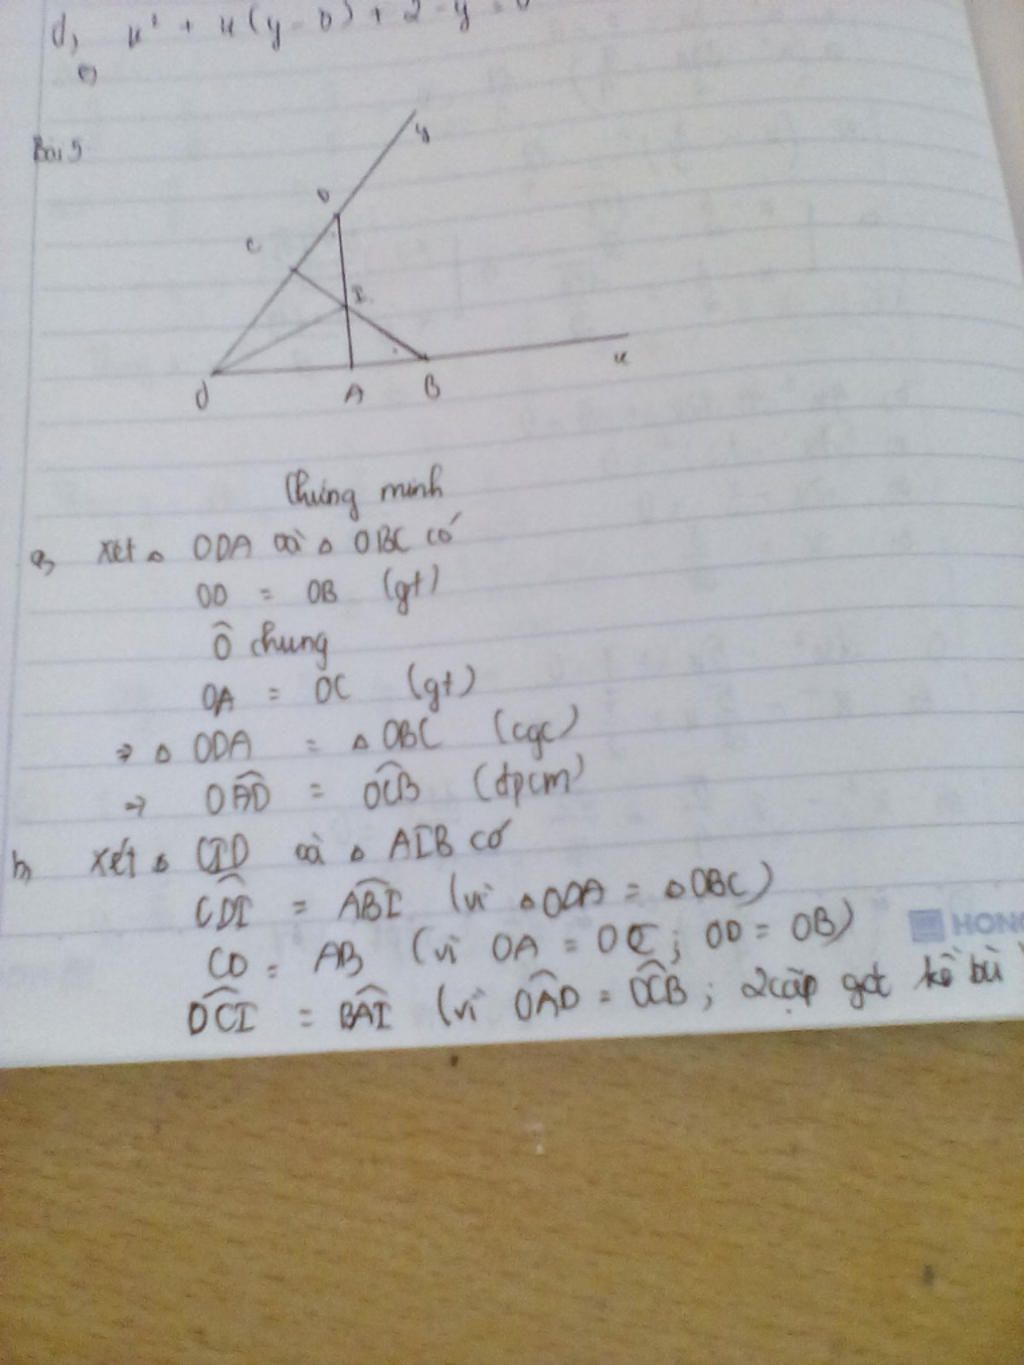 d,
e)
Bài 5
y
D
C
I
O
A
B
x
Chứng minh
a, Xét △ ODA và △ OBC có
OD = OB (gt)
Ô chung
OA = OC (gt)
⇒ △ ODA = △ OBC (cgc)
⇒ OÂD = OĈB (đpcm)
b, Xét △ CID và △ AIB có
CD̂I = AB̂I (vì △ODA = △OBC)
CD = AB (vì OA = OC; OD = OB)
HONG
DĈI = BÂI (vì OÂD = OĈB; 2 cặp góc kề bù)